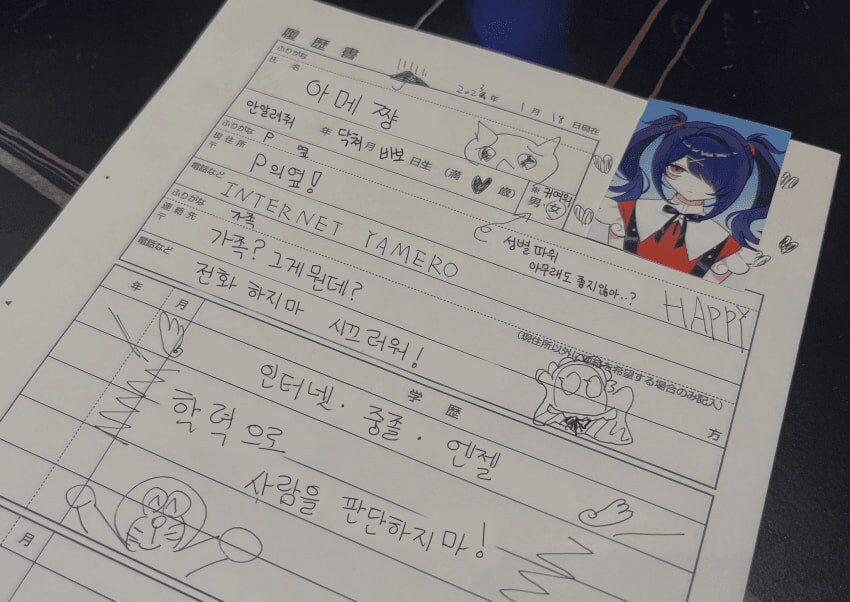 履歴書
2024年 1月 18日現在
ふりがな
氏名
아메쨩
안알려줘 年 닥쳐 月 바보 日生 (満 歳)
귀여워
男・女
ふりがな P 옆
現住所 〒
P의옆!
성별 따위
아무래도 좋지않아..?
電話など INTERNET YAMERO
HAPPY
ふりがな 가족
連絡先 〒
가족? 그게뭔데?
(現住所以外に連絡を希望する場合のみ記入)
方
電話など 전화 하지마 시끄러워!
年 月
学歴
인터넷・중졸・엔젤
학력으로
사람을 판단하지마!
月